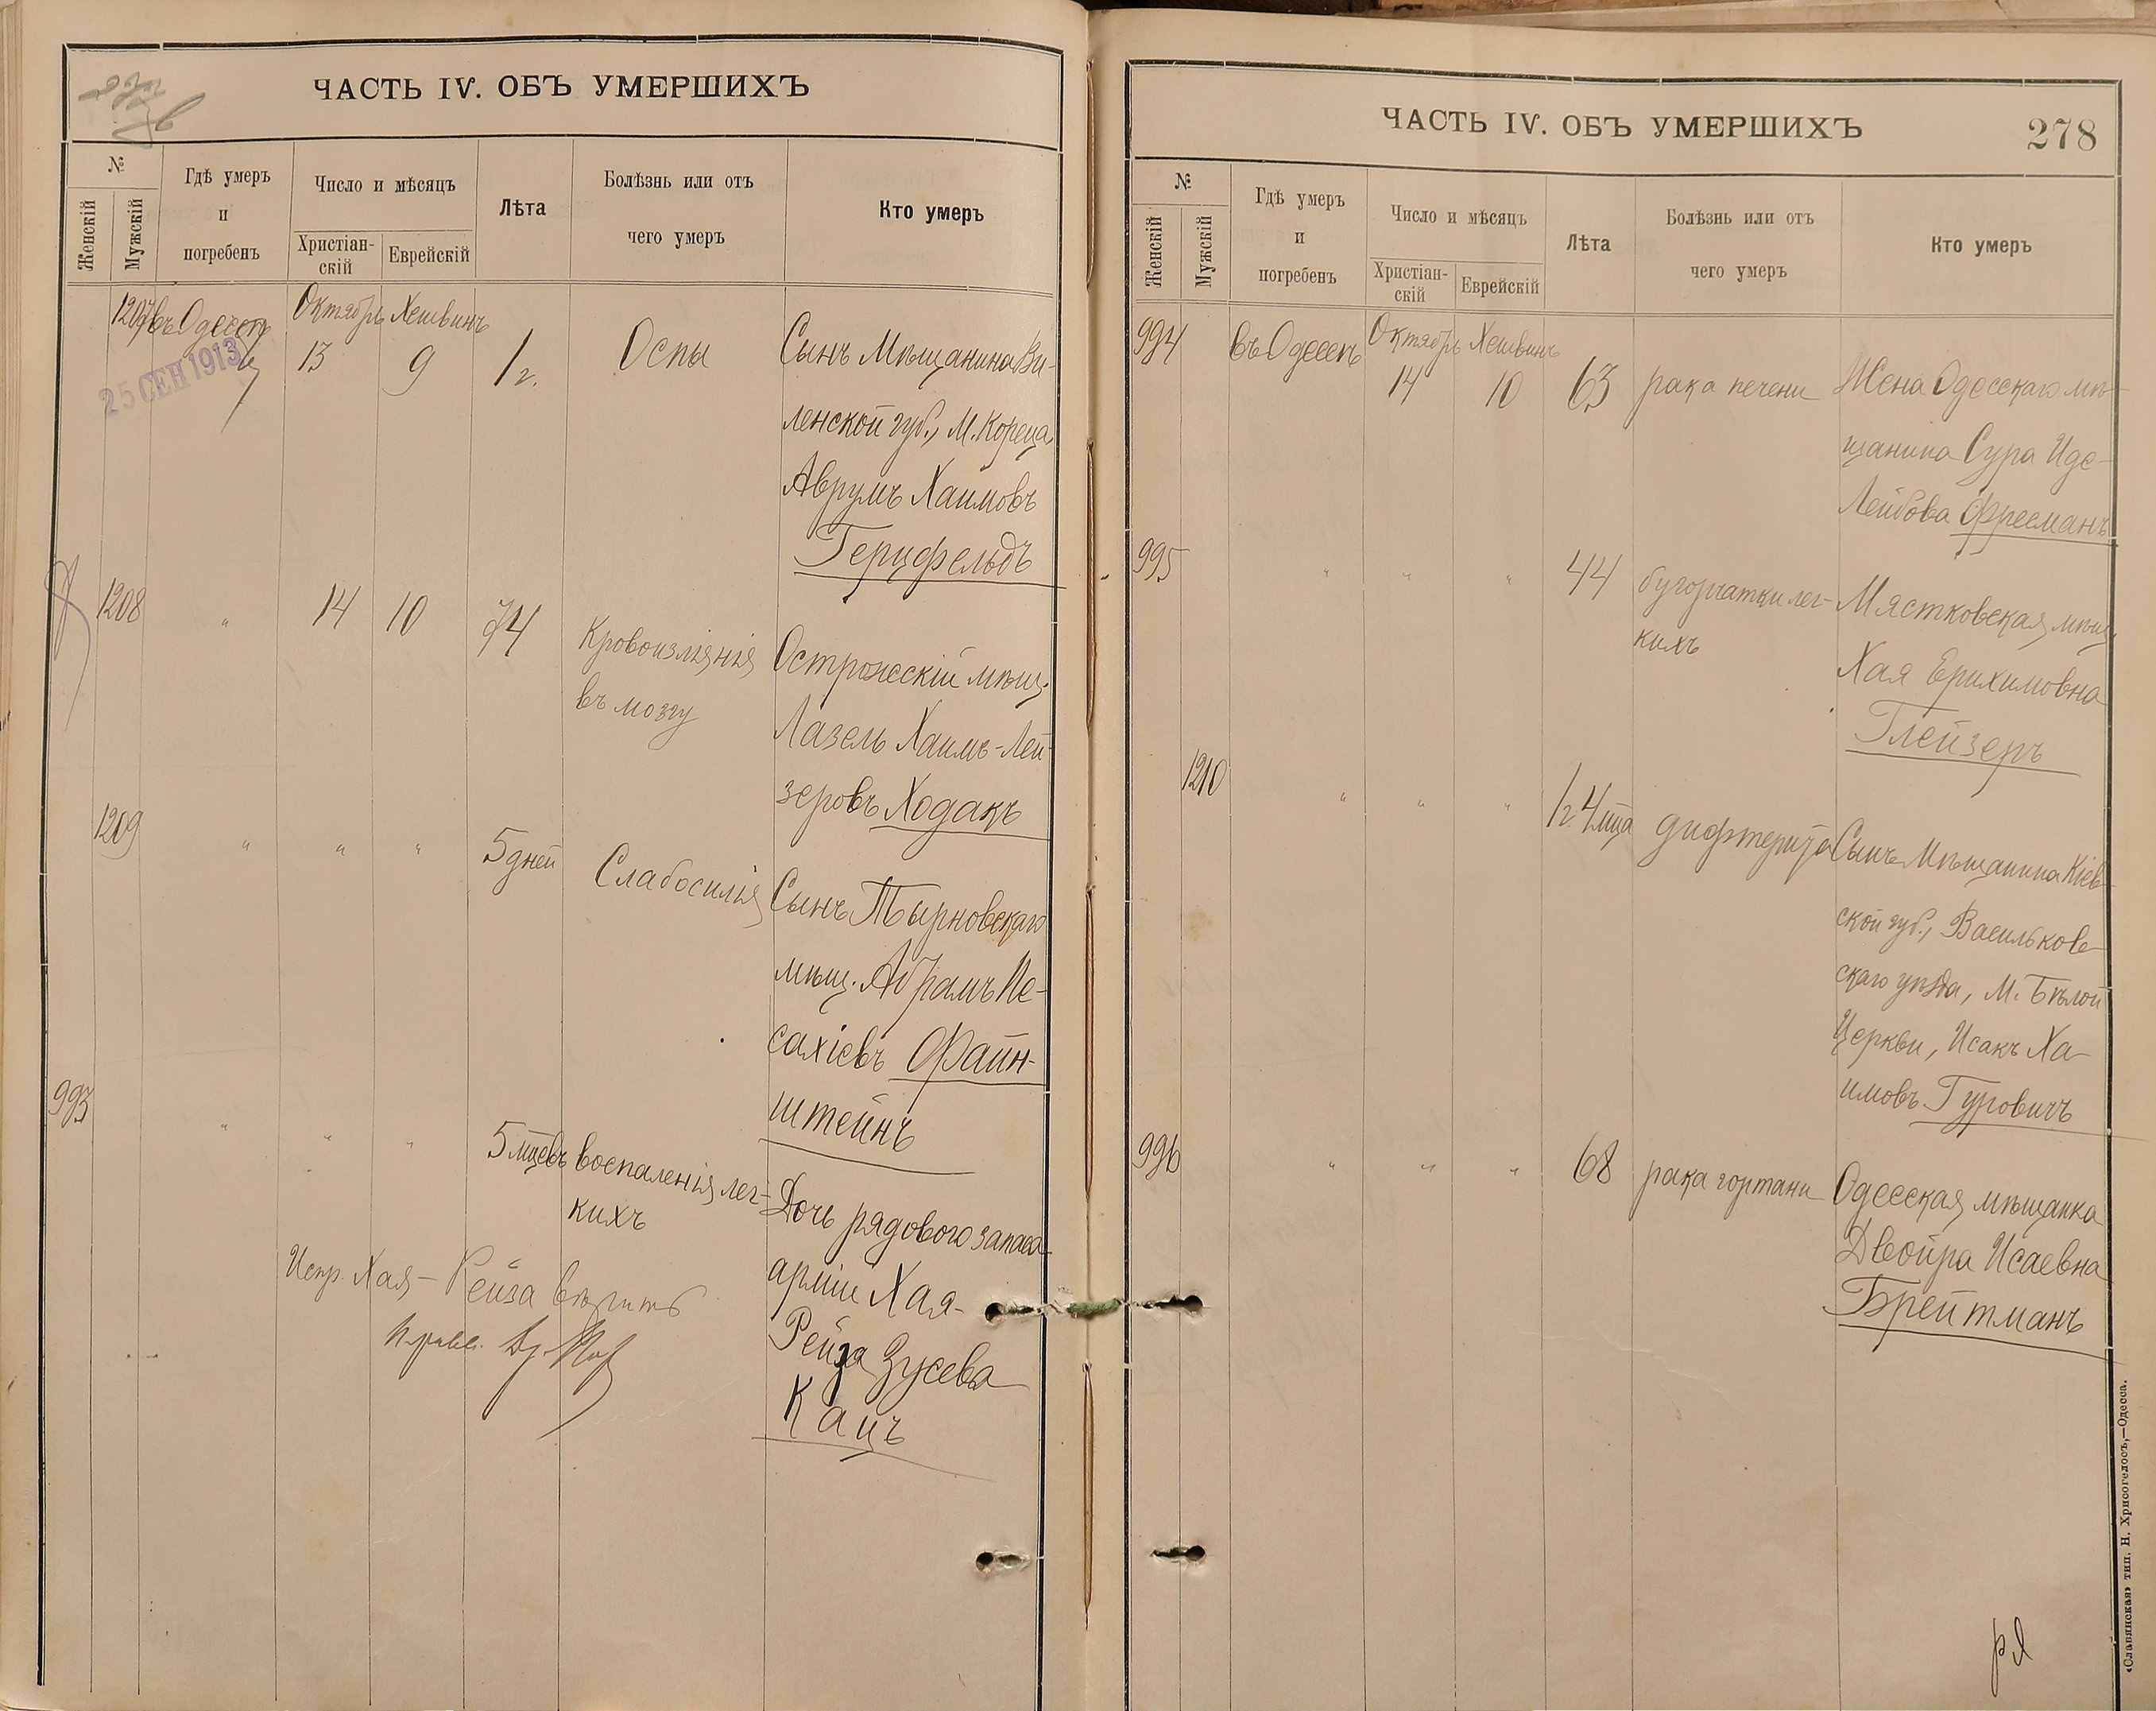 ЧАСТЬ IV. ОБЪ УМЕРШИХЪ
№
Женскій
Мужскій
Гдѣ умеръ
и
погребенъ
Число и мѣсяцъ
Христіан-
скій
Еврейскій
Лѣта
Болѣзнь или отъ
чего умеръ
Кто умеръ
1207 въ Одессѣ Октябрь Хешвинъ
13 9 1 г. Оспы Сынъ Мѣщанина Ви-
ленской губ., М. Кореца
Аврумъ Хаимовъ
Герцфельдъ
25 СЕН 1913
1208 " 14 10 74 Кровоизліянія
въ мозгу
Острожскій мѣщ.
Лазель Хаимъ-Лей-
зеровъ Ходакъ
1209 " " " 5 дней Слабосилія Сынъ Тырновскаго
мѣщ. Абрамъ Пе-
сахіевъ Файн-
штейнъ
993 " " " 5 мцевъ воспаленія лег-
кихъ
Дочь рядового запаса
арміи Хая-
Рейза Зусева
Кацъ
Испр. Хая-Рейза вѣрить
ЧАСТЬ IV. ОБЪ УМЕРШИХЪ
278
№
Женскій
Мужскій
Гдѣ умеръ
и
погребенъ
Число и мѣсяцъ
Христіан-
скій
Еврейскій
Лѣта
Болѣзнь или отъ
чего умеръ
Кто умеръ
994 въ Одессѣ Октябрь Хешвинъ
14 10 63 рака печени Жена Одесскаго мѣ-
щанина Сура Иде-
Лейбова Фресманъ
995 " " " 44 бугорчатки лег-
кихъ
Мястковская мѣщ.
Хая Ерихимовна
Глейзеръ
1210 " " " 1 г. 4 мца дифтерита Сынъ Мѣщанина Кіев-
ской губ., Васильков-
скаго уѣзда, М. Бѣлой
Церкви, Исакъ Ха-
имовъ Гуровичъ
996 " " " 68 рака гортани Одесская мѣщанка
Двойра Исаевна
Брейтманъ
«Славянская» тип. Н. Хрисогелосъ,—Одесса.